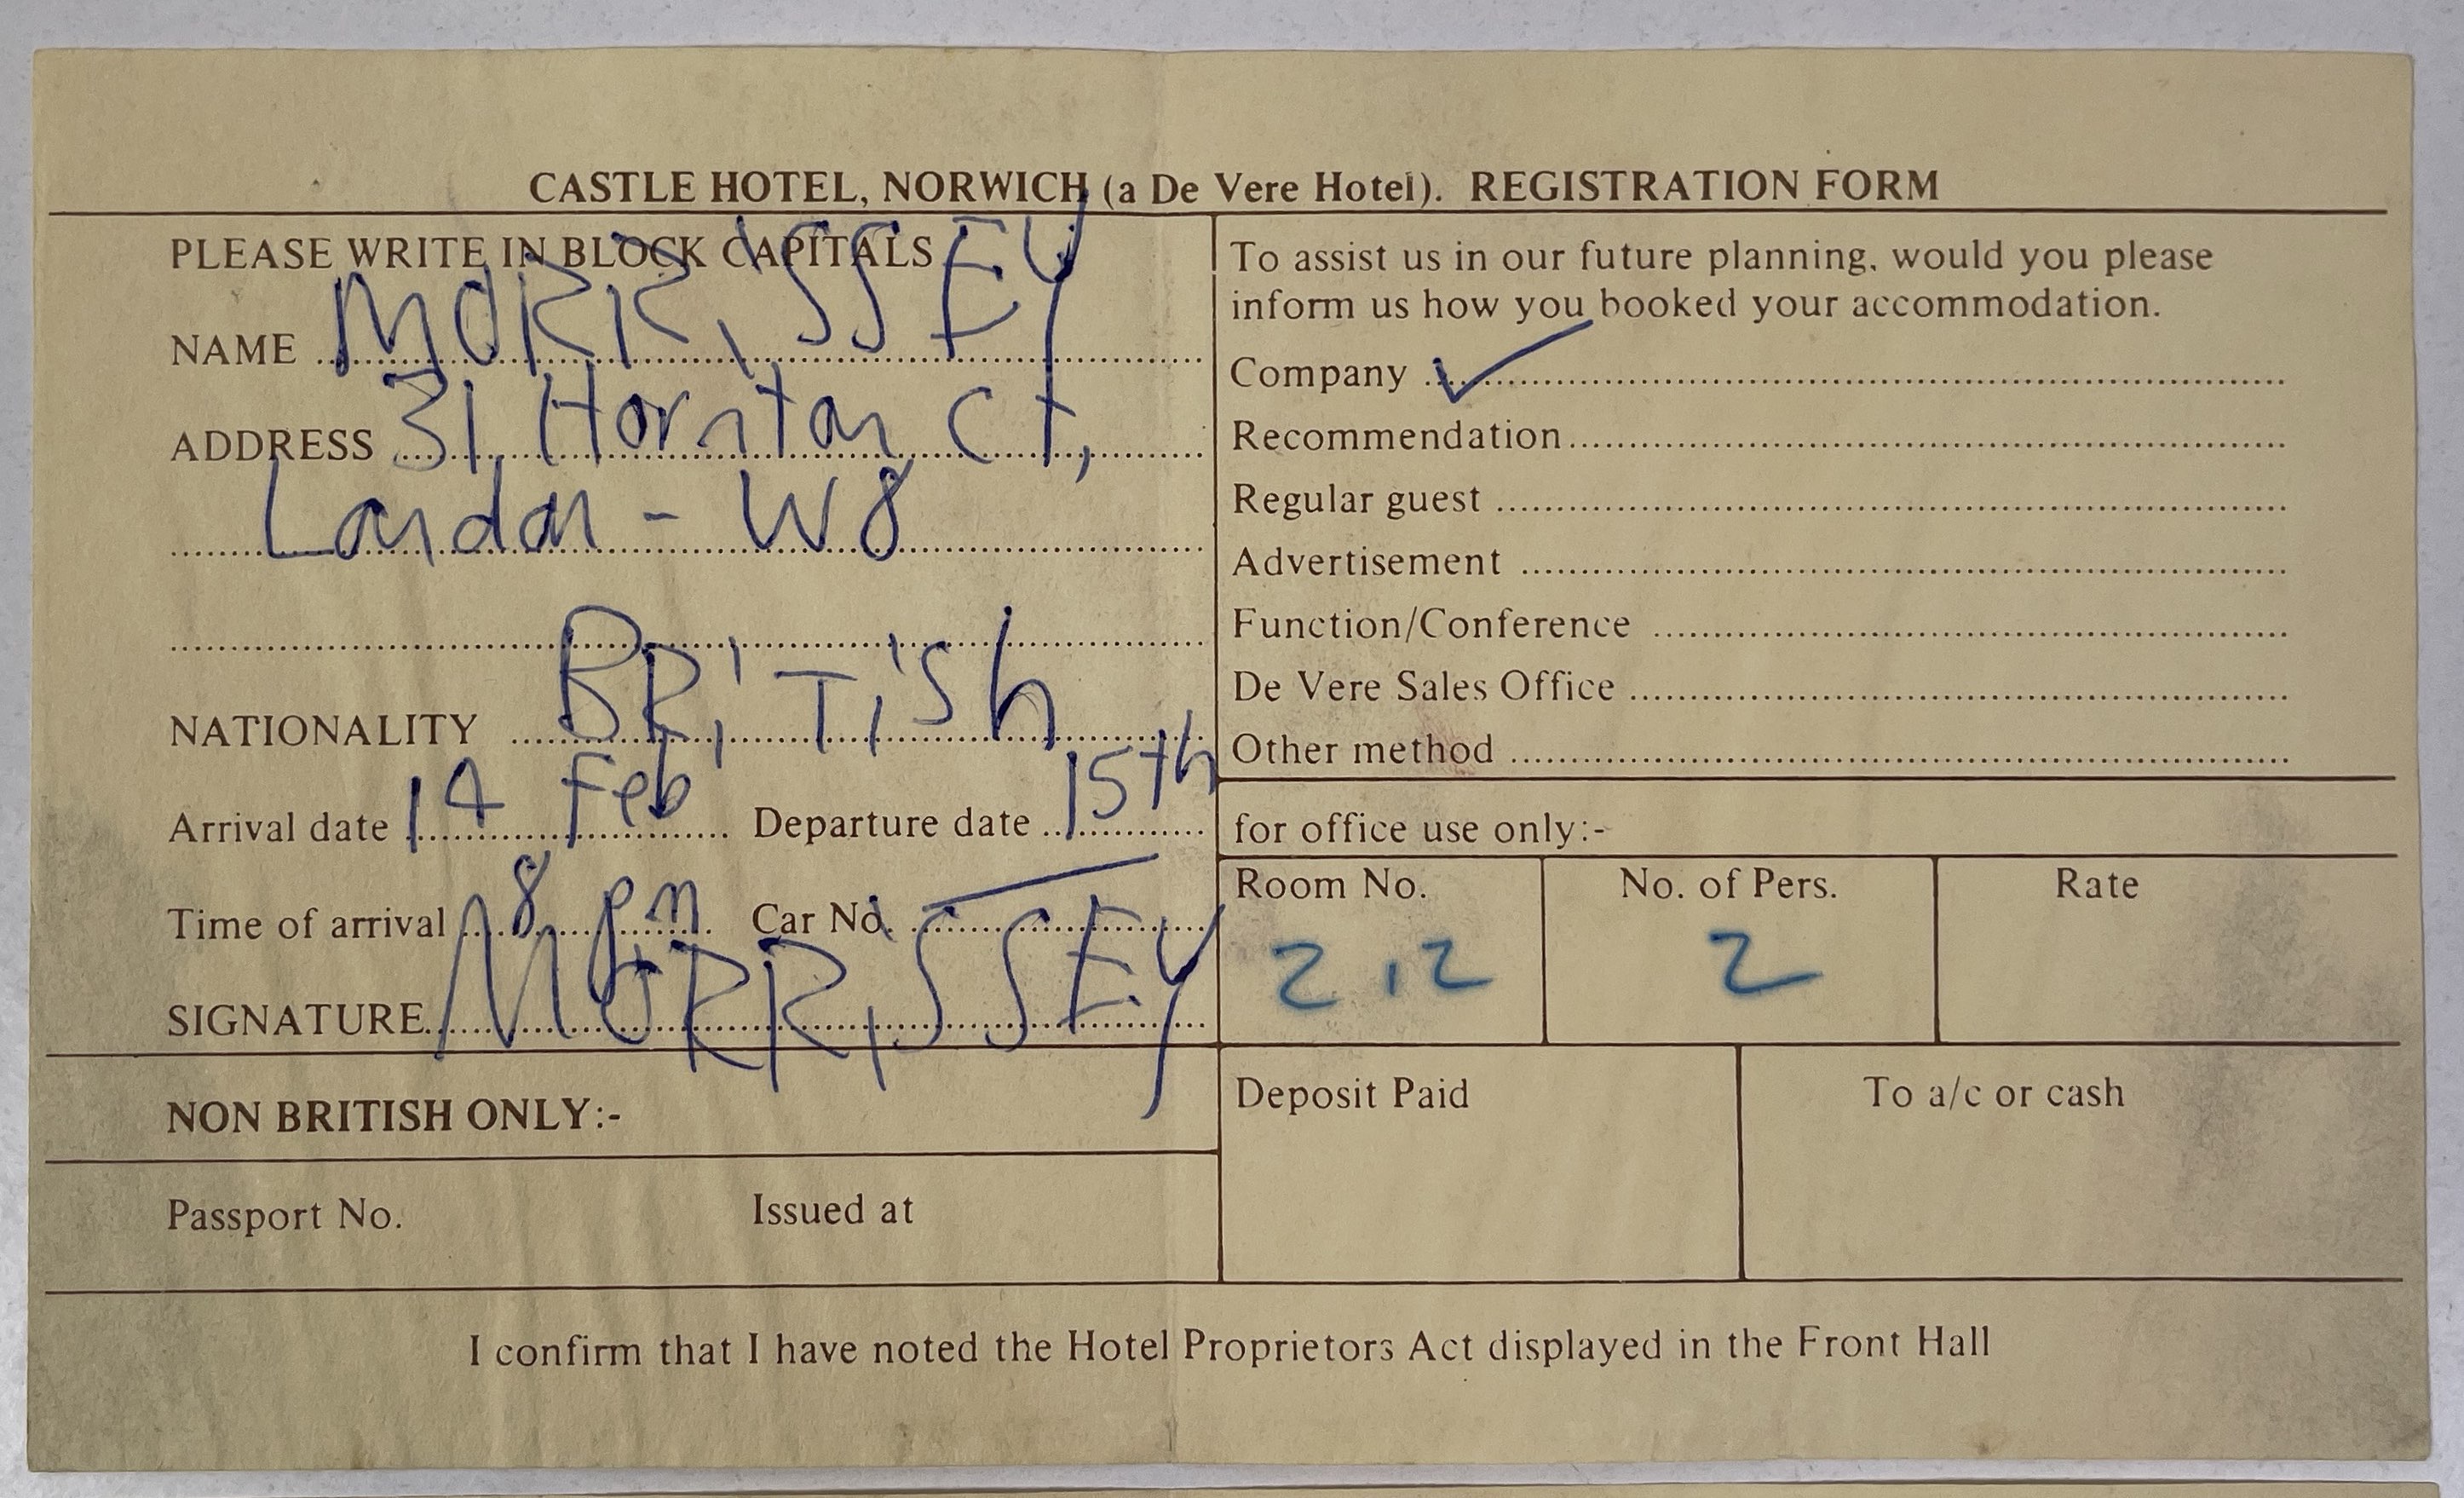 CASTLE HOTEL, NORWICH (a De Vere Hotel). REGISTRATION FORM
PLEASE WRITE IN BLOCK CAPITALS
NAME MORRISSEY
ADDRESS 31 Hornton Ct,
London - W8
NATIONALITY BRiTish
Arrival date 14 Feb Departure date 15th
Time of arrival 8 pm Car No. —
SIGNATURE MORRISSEY
NON BRITISH ONLY:-
Passport No. Issued at
To assist us in our future planning, would you please
inform us how you booked your accommodation.
Company ✓
Recommendation
Regular guest
Advertisement
Function/Conference
De Vere Sales Office
Other method
for office use only:-
Room No. No. of Pers. Rate
212 2
Deposit Paid To a/c or cash
I confirm that I have noted the Hotel Proprietors Act displayed in the Front Hall